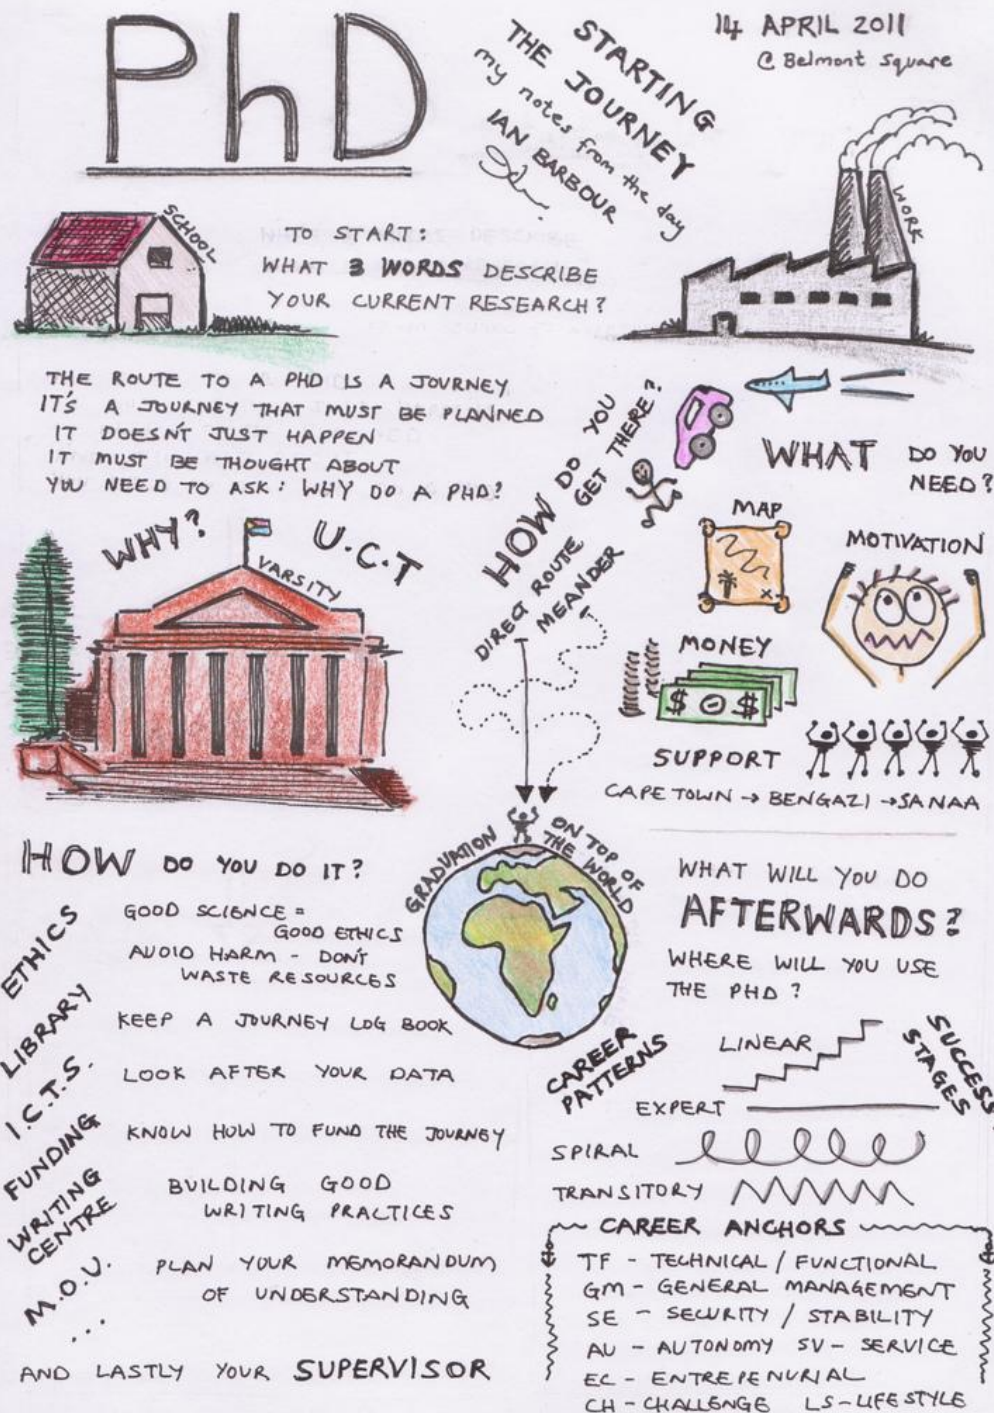 PhD
STARTING
THE JOURNEY
my notes from the day
IAN BARBOUR
14 APRIL 2011
@ Belmont Square
SCHOOL
TO START:
WHAT 3 WORDS DESCRIBE
YOUR CURRENT RESEARCH?
WORK
THE ROUTE TO A PHD IS A JOURNEY
IT'S A JOURNEY THAT MUST BE PLANNED
IT DOESN'T JUST HAPPEN
IT MUST BE THOUGHT ABOUT
YOU NEED TO ASK: WHY DO A PHD?
WHY?
U.C.T
VARSITY
HOW DO YOU
GET THERE?
DIRECT ROUTE
MEANDER
WHAT DO YOU
NEED?
MAP
MOTIVATION
MONEY
$ O $
SUPPORT
CAPE TOWN → BENGAZI → SANAA
GRADUATION
ON TOP OF
THE WORLD
HOW DO YOU DO IT?
ETHICS
GOOD SCIENCE =
GOOD ETHICS
AVOID HARM - DON'T
WASTE RESOURCES
LIBRARY
KEEP A JOURNEY LOG BOOK
I.C.T.S.
LOOK AFTER YOUR DATA
FUNDING
KNOW HOW TO FUND THE JOURNEY
WRITING
CENTRE
BUILDING GOOD
WRITING PRACTICES
M.O.U.
PLAN YOUR MEMORANDUM
OF UNDERSTANDING
...
AND LASTLY YOUR SUPERVISOR
WHAT WILL YOU DO
AFTERWARDS?
WHERE WILL YOU USE
THE PHD?
CAREER
PATTERNS
SUCCESS
STAGES
LINEAR
EXPERT
SPIRAL
TRANSITORY
CAREER ANCHORS
TF - TECHNICAL / FUNCTIONAL
GM - GENERAL MANAGEMENT
SE - SECURITY / STABILITY
AU - AUTONOMY SV - SERVICE
EC - ENTREPENURIAL
CH - CHALLENGE LS - LIFESTYLE